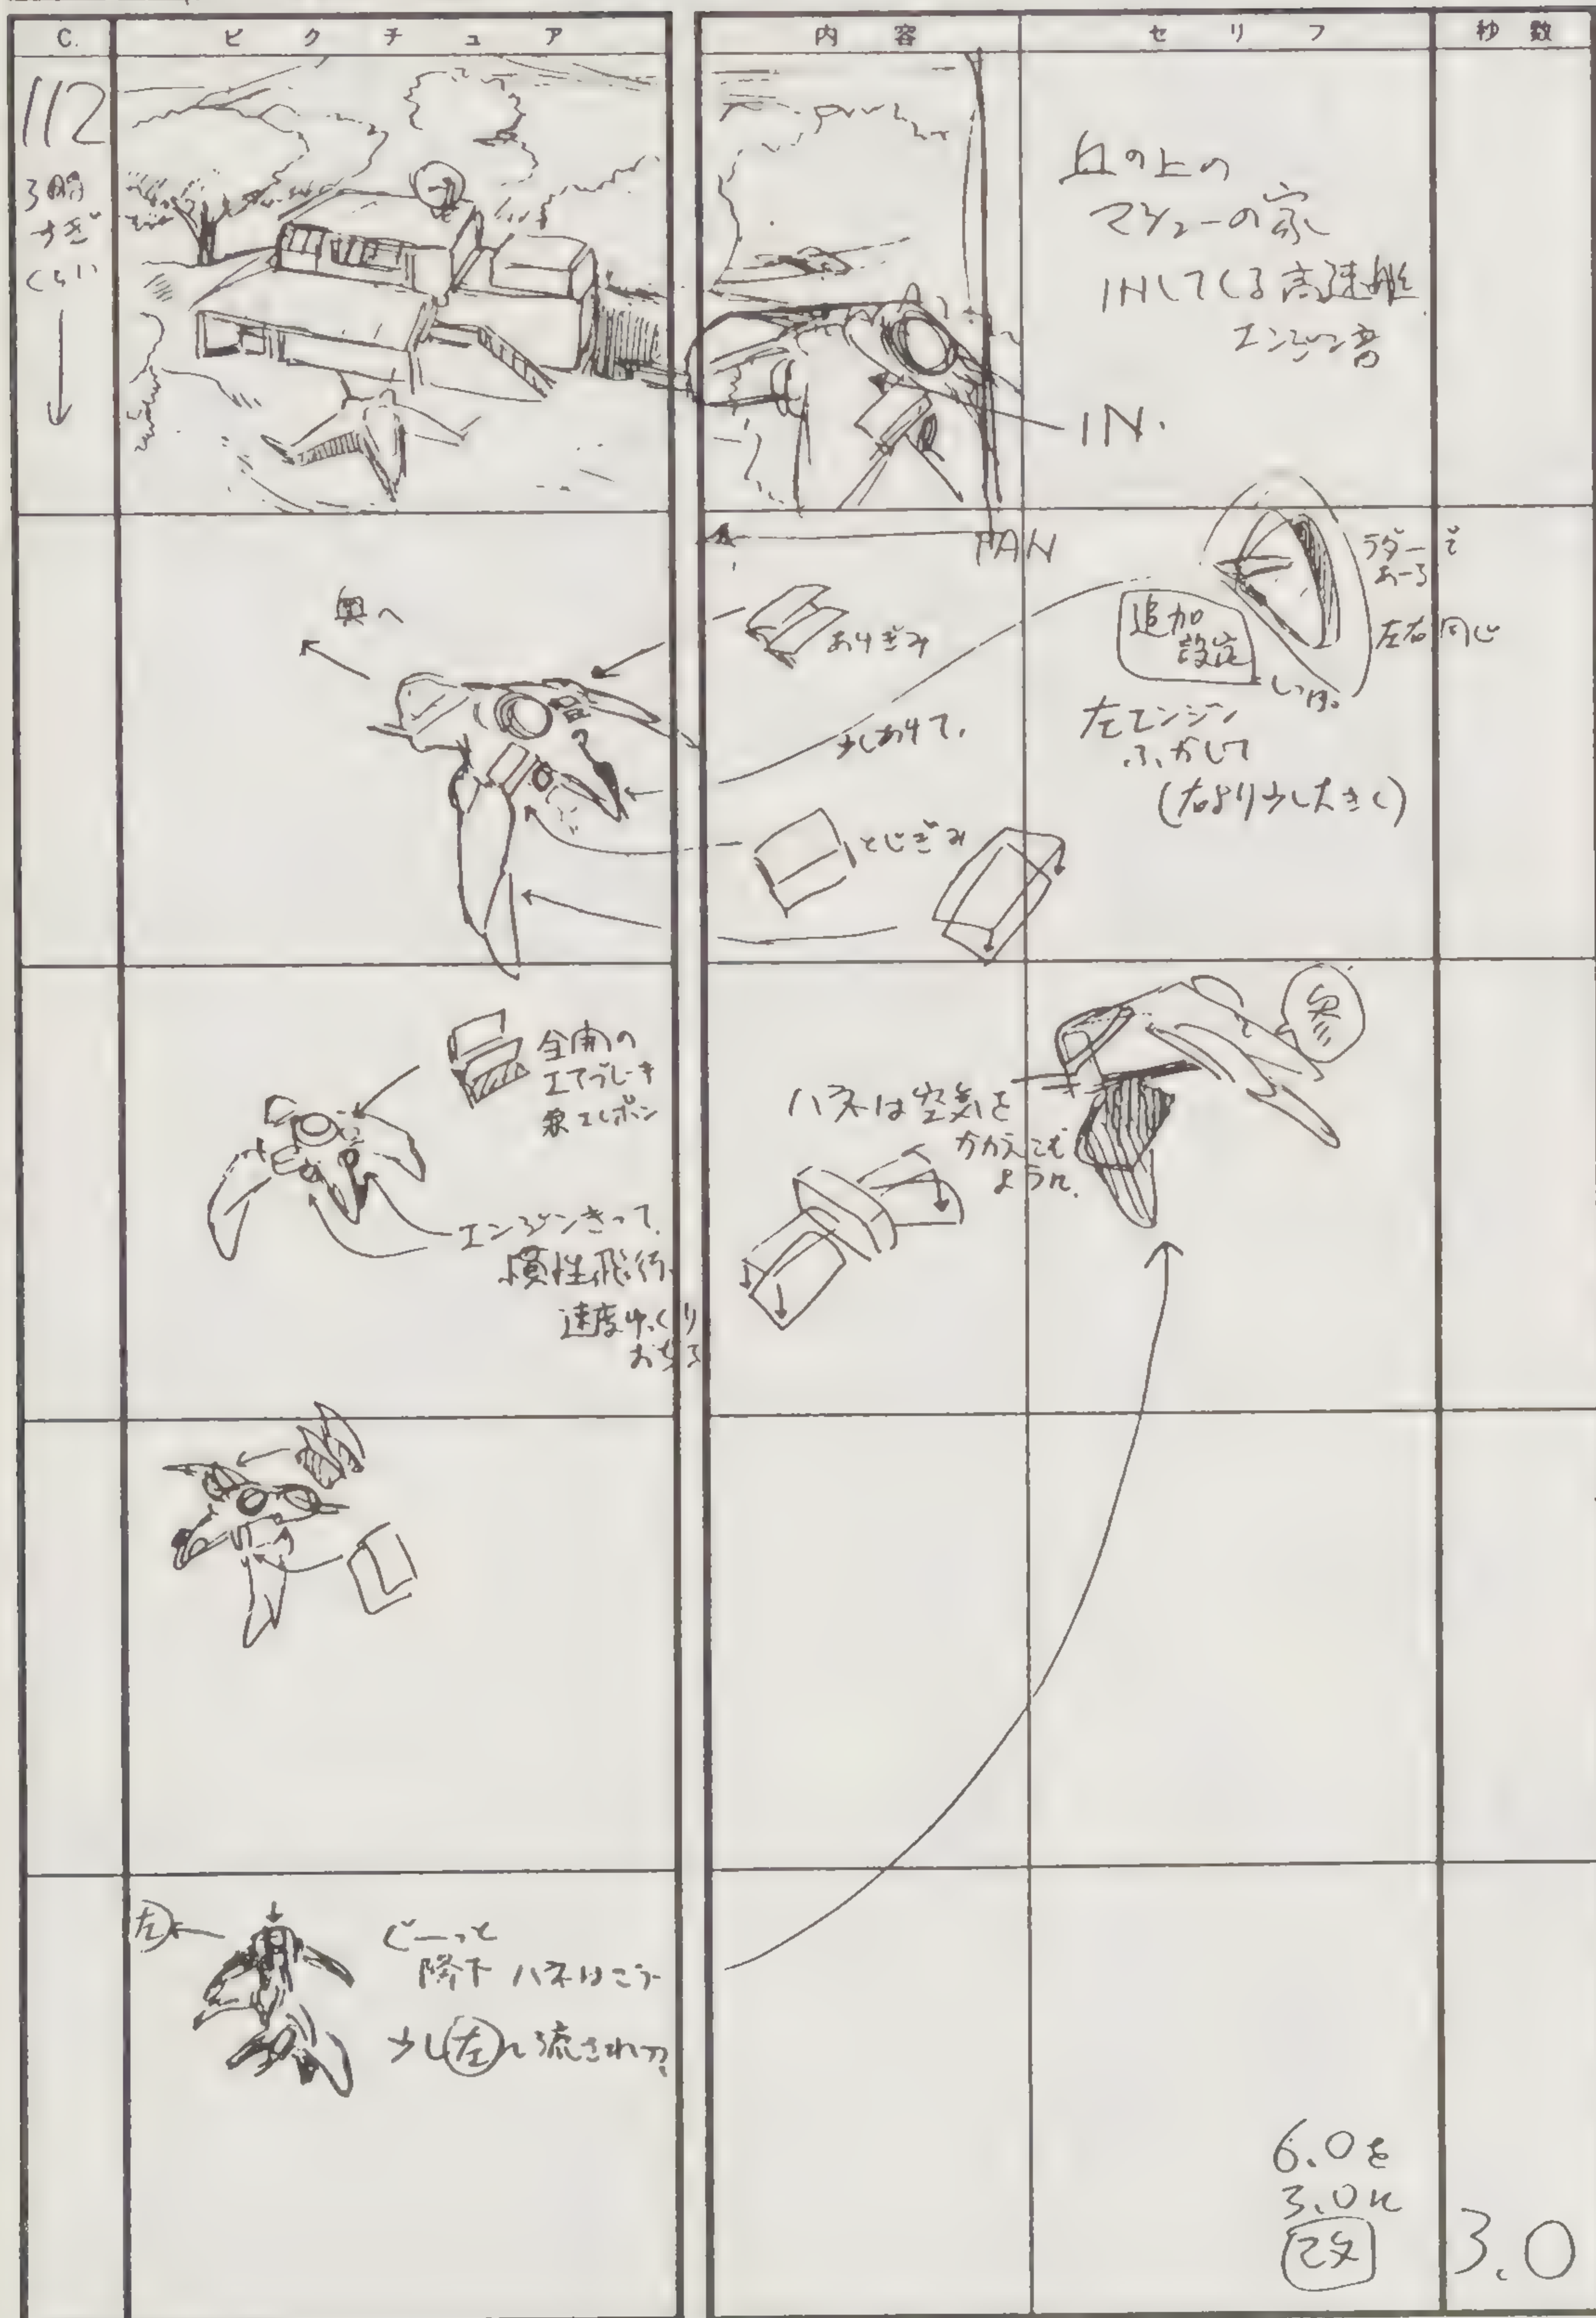 C.
ピクチュア
内容
セリフ
秒数
112
3時
すぎ
くらい
丘の上の
マシューの家
INしてくる高速艇
エンジン音
IN.
PAN
奥へ
あけぎみ
少しあけて、
とじぎみ
追加
設定
左右同じ
左エンジン
ふかして
(右より少し大きく)
全開の
エアブレーキ
兼エレボン
エンジンきって
慣性飛行
速度ゆっくり
おちる
ハネは空気を
かかえこむ
ように、
左
ぐーっと
降下 ハネはこう
少し左へ流されつつ
6.0を
3.0に
改
3.0